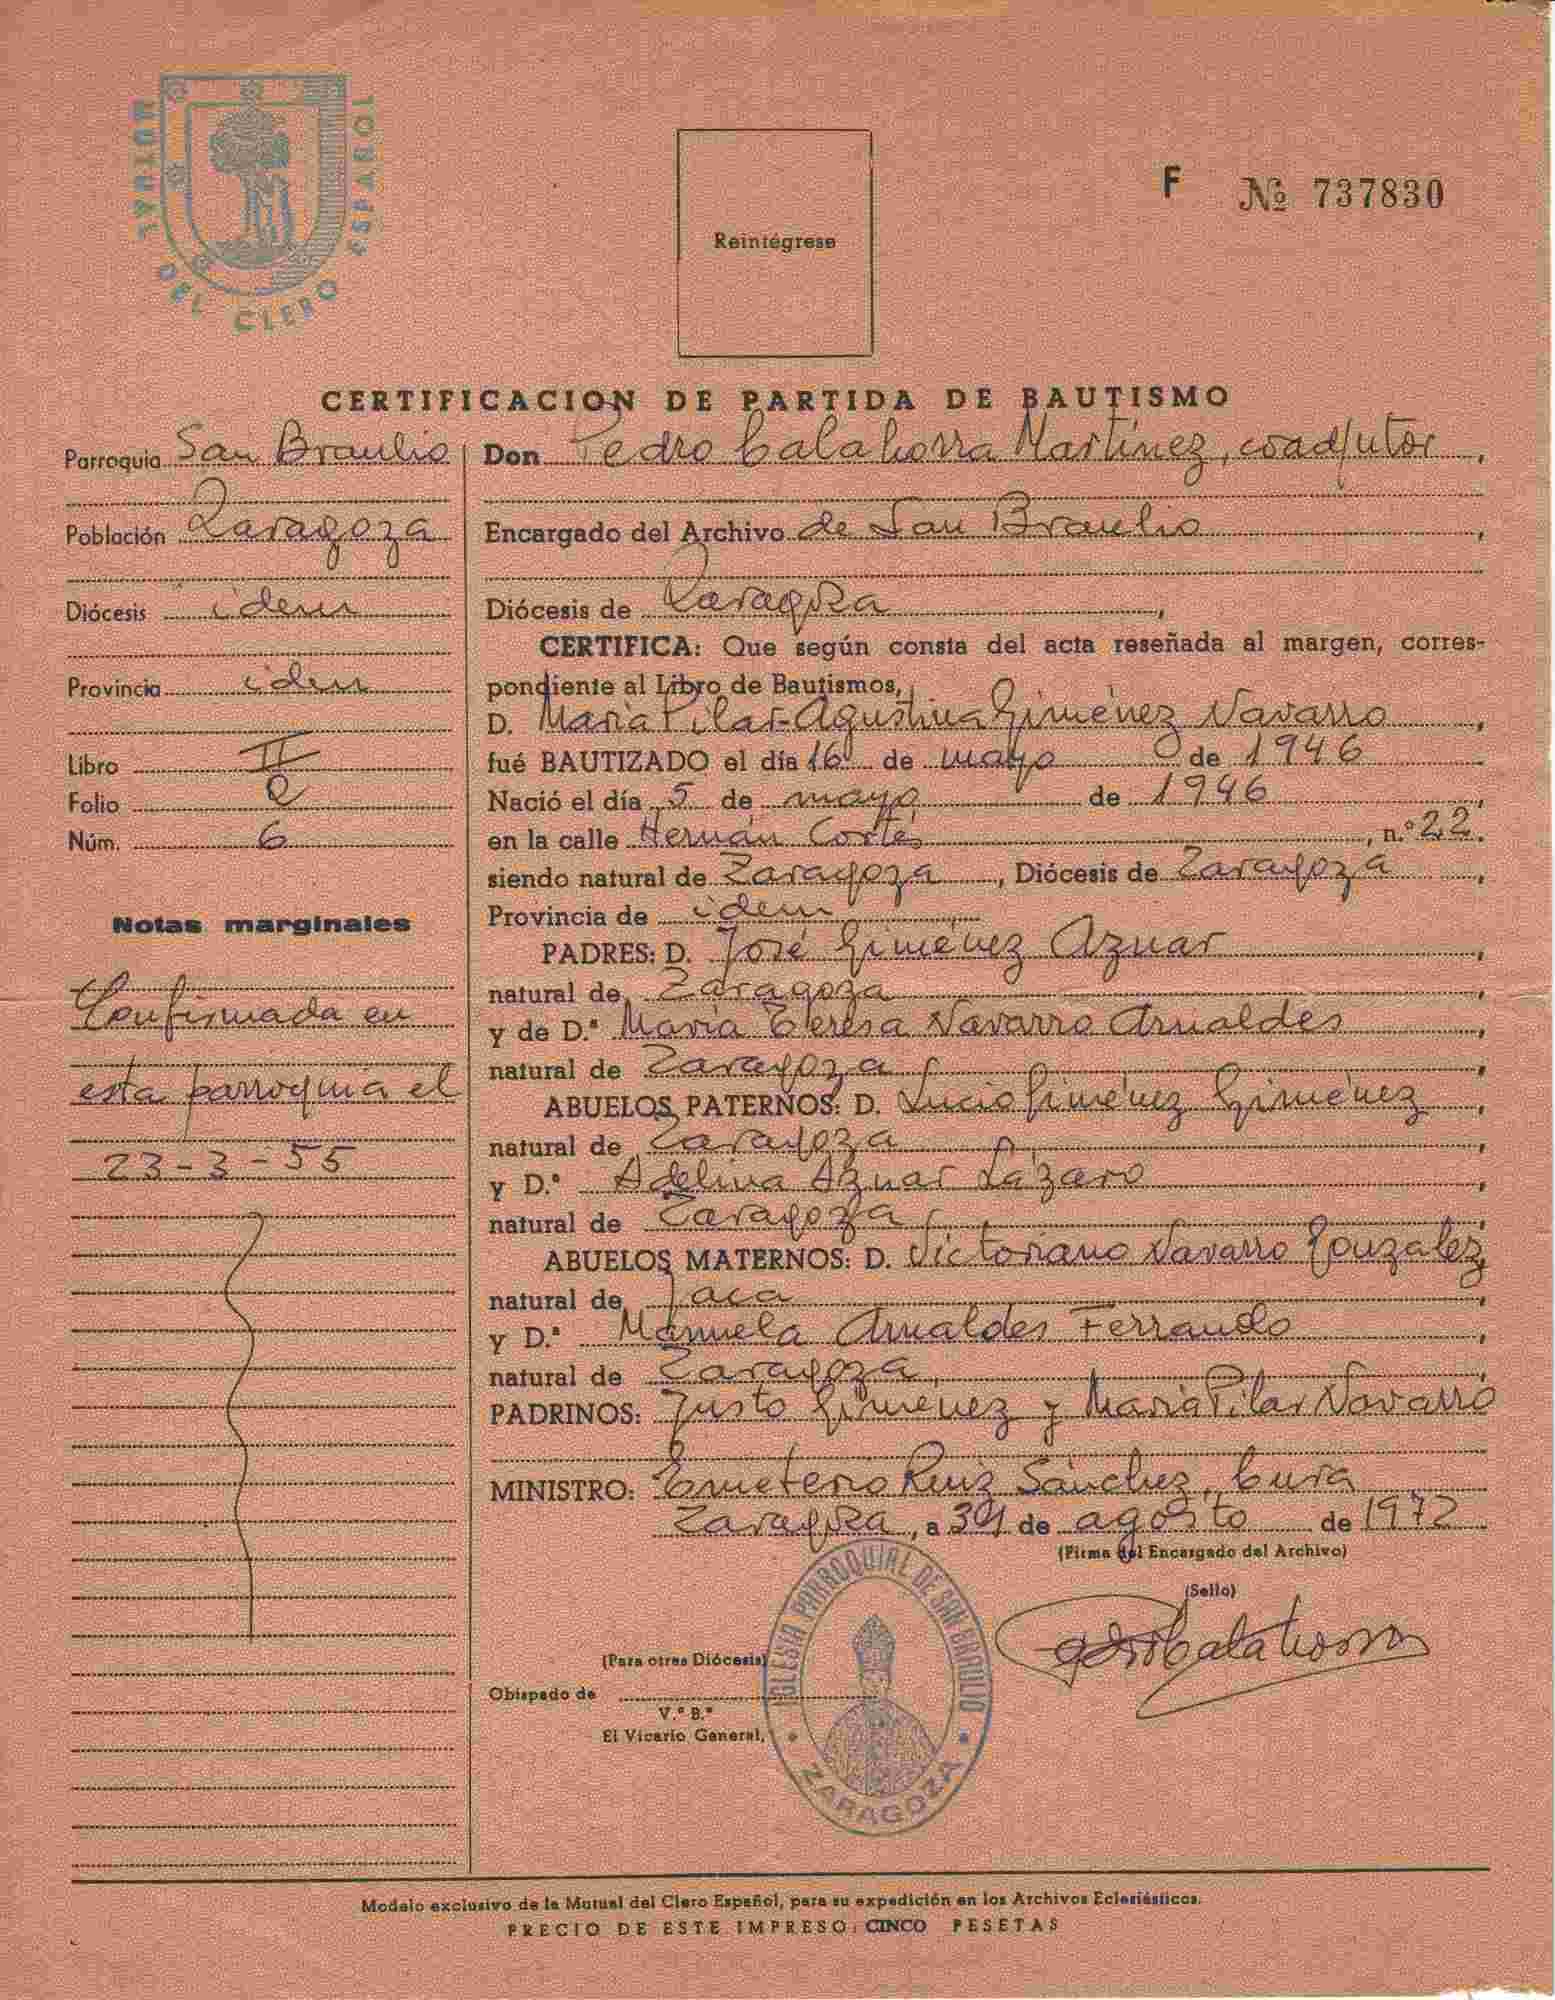 MUTUAL DEL CLERO ESPAÑOL
Reintégrese
F Nº 737830
CERTIFICACION DE PARTIDA DE BAUTISMO
Parroquia San Braulio
Población Zaragoza
Diócesis idem
Provincia idem
Libro II
Folio 2
Núm. 6
Notas marginales
Confirmada en
esta parroquia el
23-3-55
Don Pedro Calahorra Martínez, coadjutor,
Encargado del Archivo de San Braulio,
Diócesis de Zaragoza,
CERTIFICA: Que según consta del acta reseñada al margen, corres-
pondiente al Libro de Bautismos,
D. María Pilar-Agustina Giménez Navarro,
fué BAUTIZADO el día 16 de mayo de 1946
Nació el día 5 de mayo de 1946,
en la calle Hernán Cortés, n.º 22.
siendo natural de Zaragoza, Diócesis de Zaragoza,
Provincia de idem
PADRES: D. José Giménez Aznar,
natural de Zaragoza,
y de D.ª María Teresa Navarro Arnaldes,
natural de Zaragoza,
ABUELOS PATERNOS: D. Lucio Giménez Giménez,
natural de Zaragoza,
y D.ª Adelina Aznar Lázaro,
natural de Zaragoza,
ABUELOS MATERNOS: D. Victoriano Navarro Gonzalez,
natural de Jaca,
y D.ª Manuela Arnaldes Ferrando,
natural de Zaragoza,
PADRINOS: Justo Giménez y María Pilar Navarro
MINISTRO: Emeterio Ruiz Sánchez, Cura
Zaragoza, a de agosto de 1972
(Firma del Encargado del Archivo)
(Sello)
Pedro Calahorra
(Para otras Diócesis)
Obispado de
V.º B.º
El Vicario General,
IGLESIA PARROQUIAL DE SAN BRAULIO
ZARAGOZA
Modelo exclusivo de la Mutual del Clero Español, para su expedición en los Archivos Eclesiásticos.
PRECIO DE ESTE IMPRESO: CINCO PESETAS